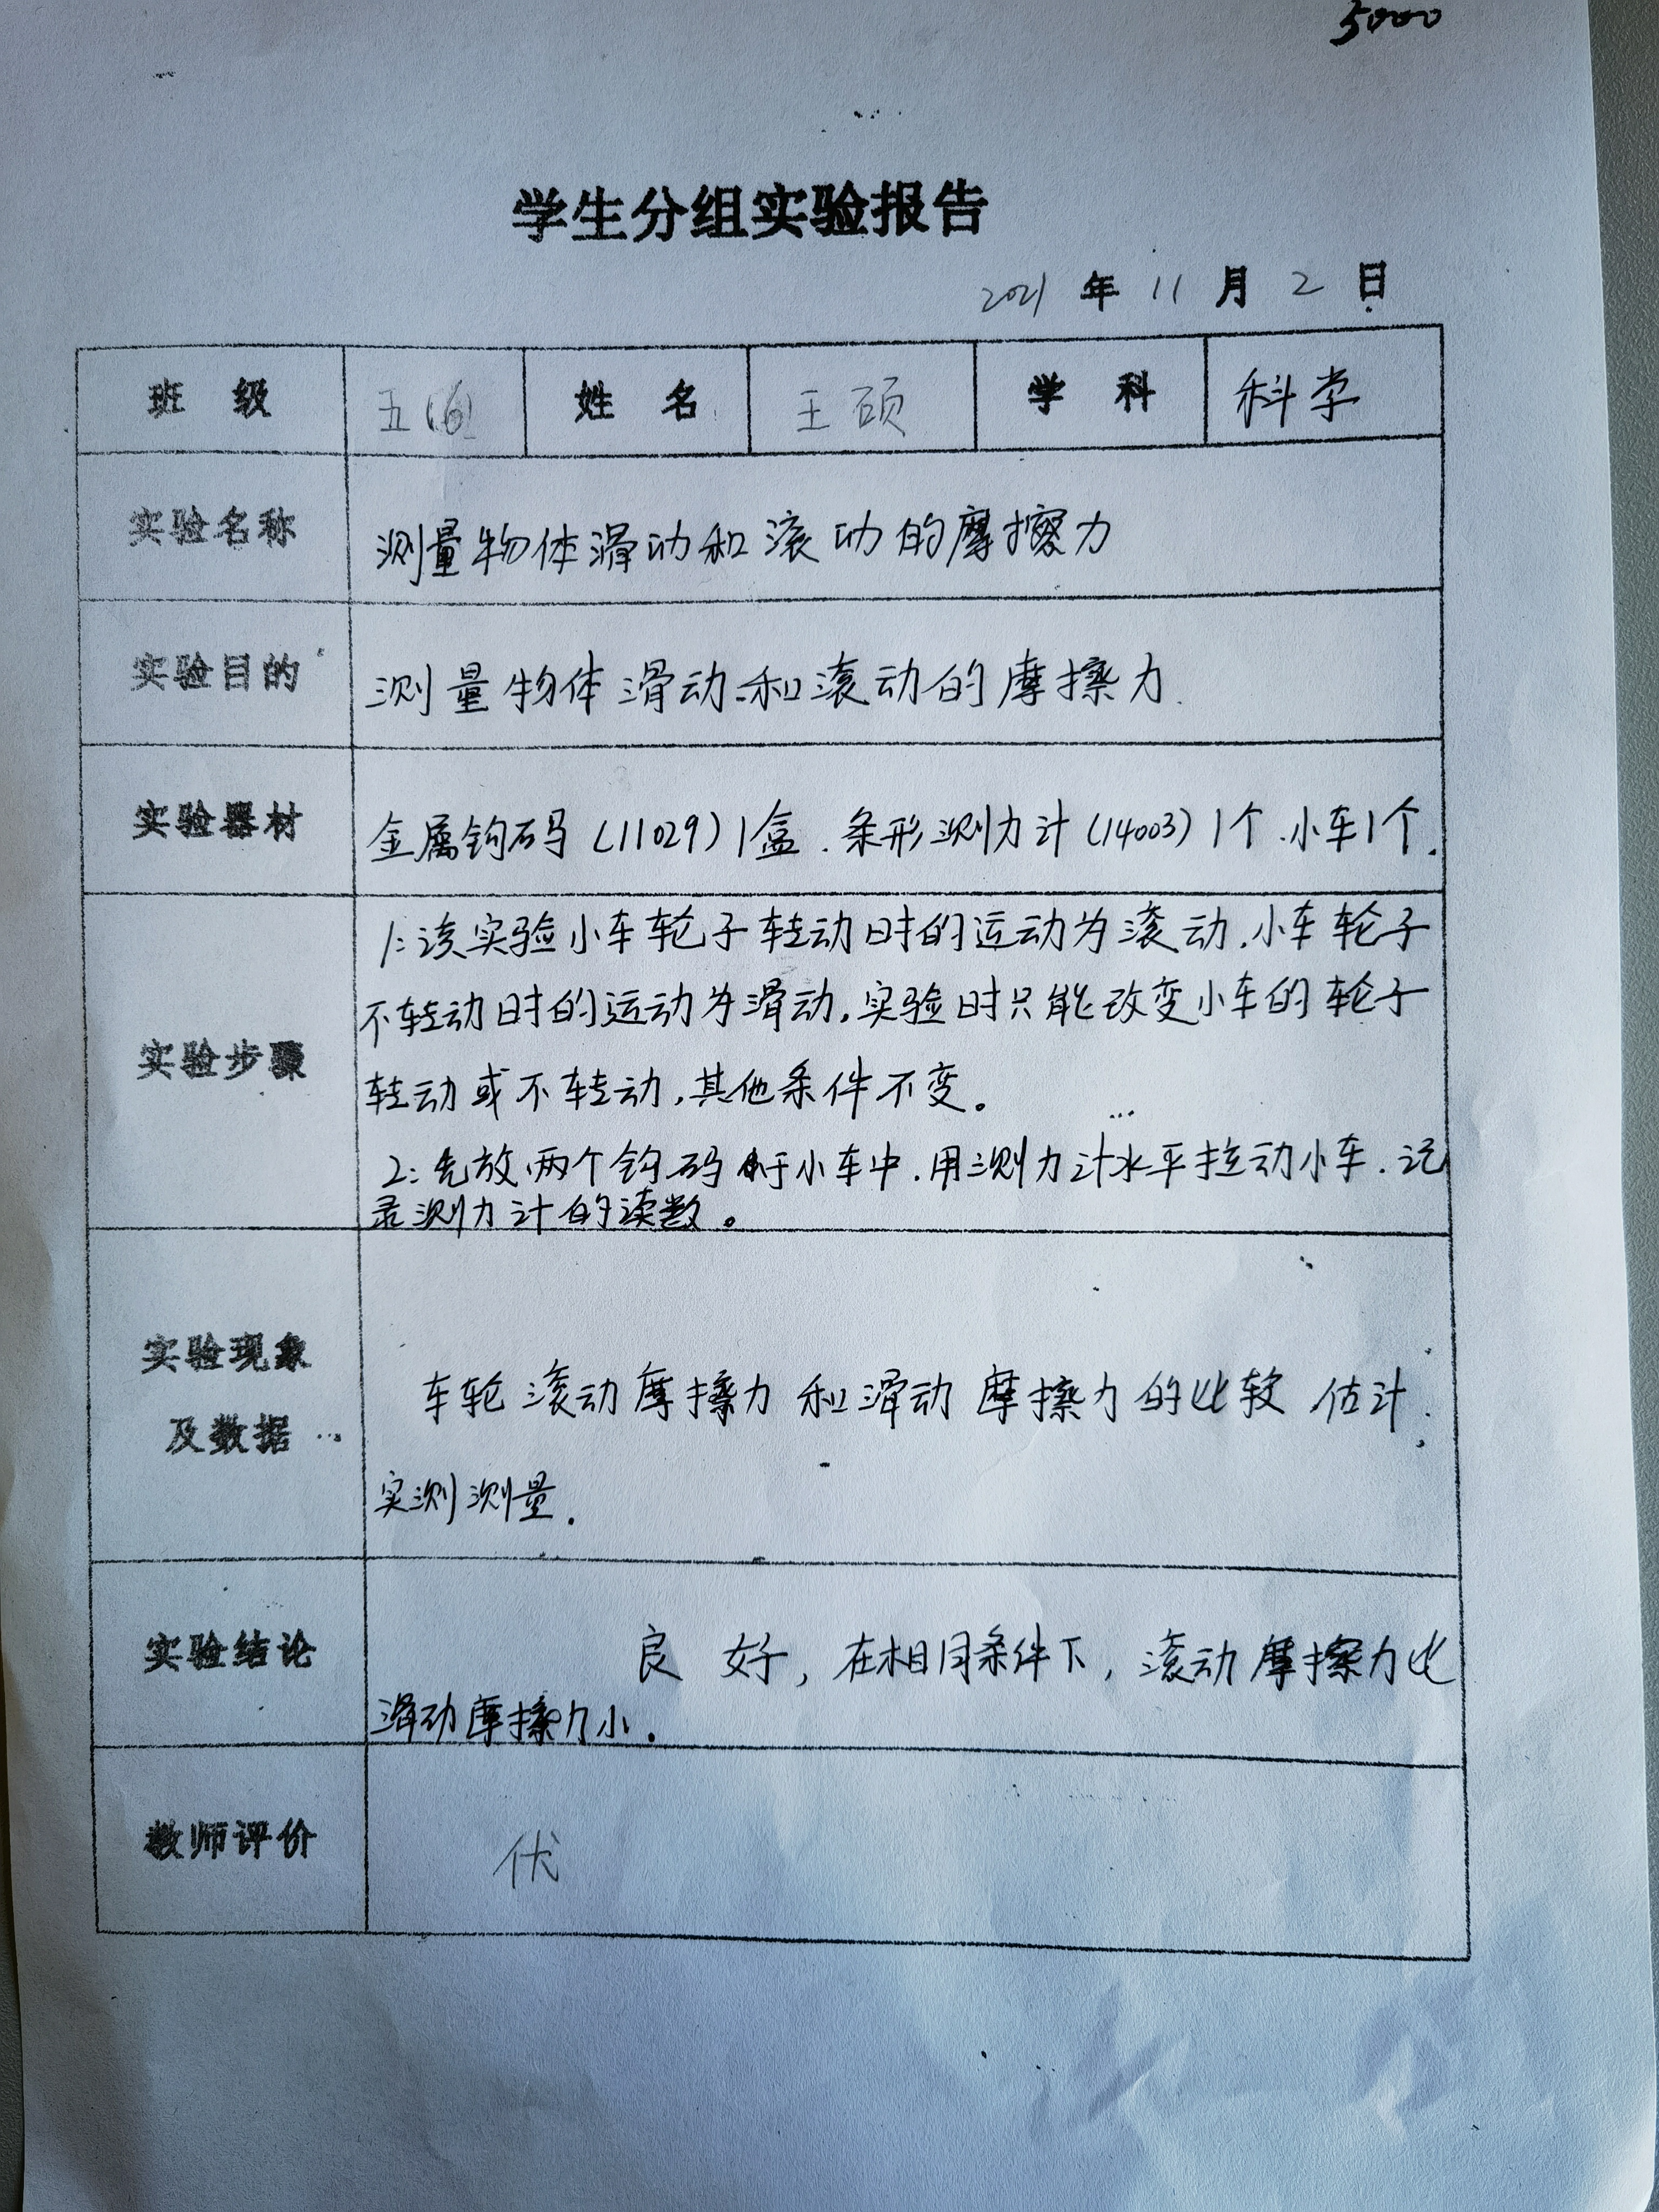 5000
学生分组实验报告
2021 年 11 月 2 日
班 级 五(6) 姓 名 王硕 学 科 科学
实验名称 测量物体滑动和滚动的摩擦力
实验目的 测量物体滑动和滚动的摩擦力.
实验器材 金属钩码(11029)1盒.条形测力计(14003)1个.小车1个.
1:该实验小车轮子转动时的运动为滚动.小车轮子
不转动时的运动为滑动.实验时只能改变小车的轮子
实验步骤
转动或不转动,其他条件不变。
2:先放两个钩码于小车中.用测力计水平拉动小车.记
录测力计的读数。
实验现象
车轮滚动摩擦力和滑动摩擦力的比较 估计.
及数据
实测测量.
实验结论 良好,在相同条件下,滚动摩擦力比
滑动摩擦力小.
教师评价 伏